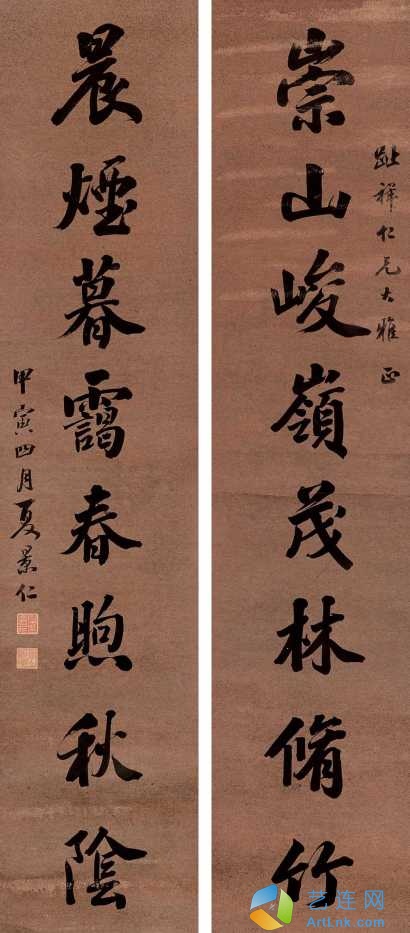 趾祥仁兄大雅正
崇山峻嶺茂林脩竹
晨煙暮靄春煦秋陰
甲寅四月夏景仁
艺连网
ArtLnk.com